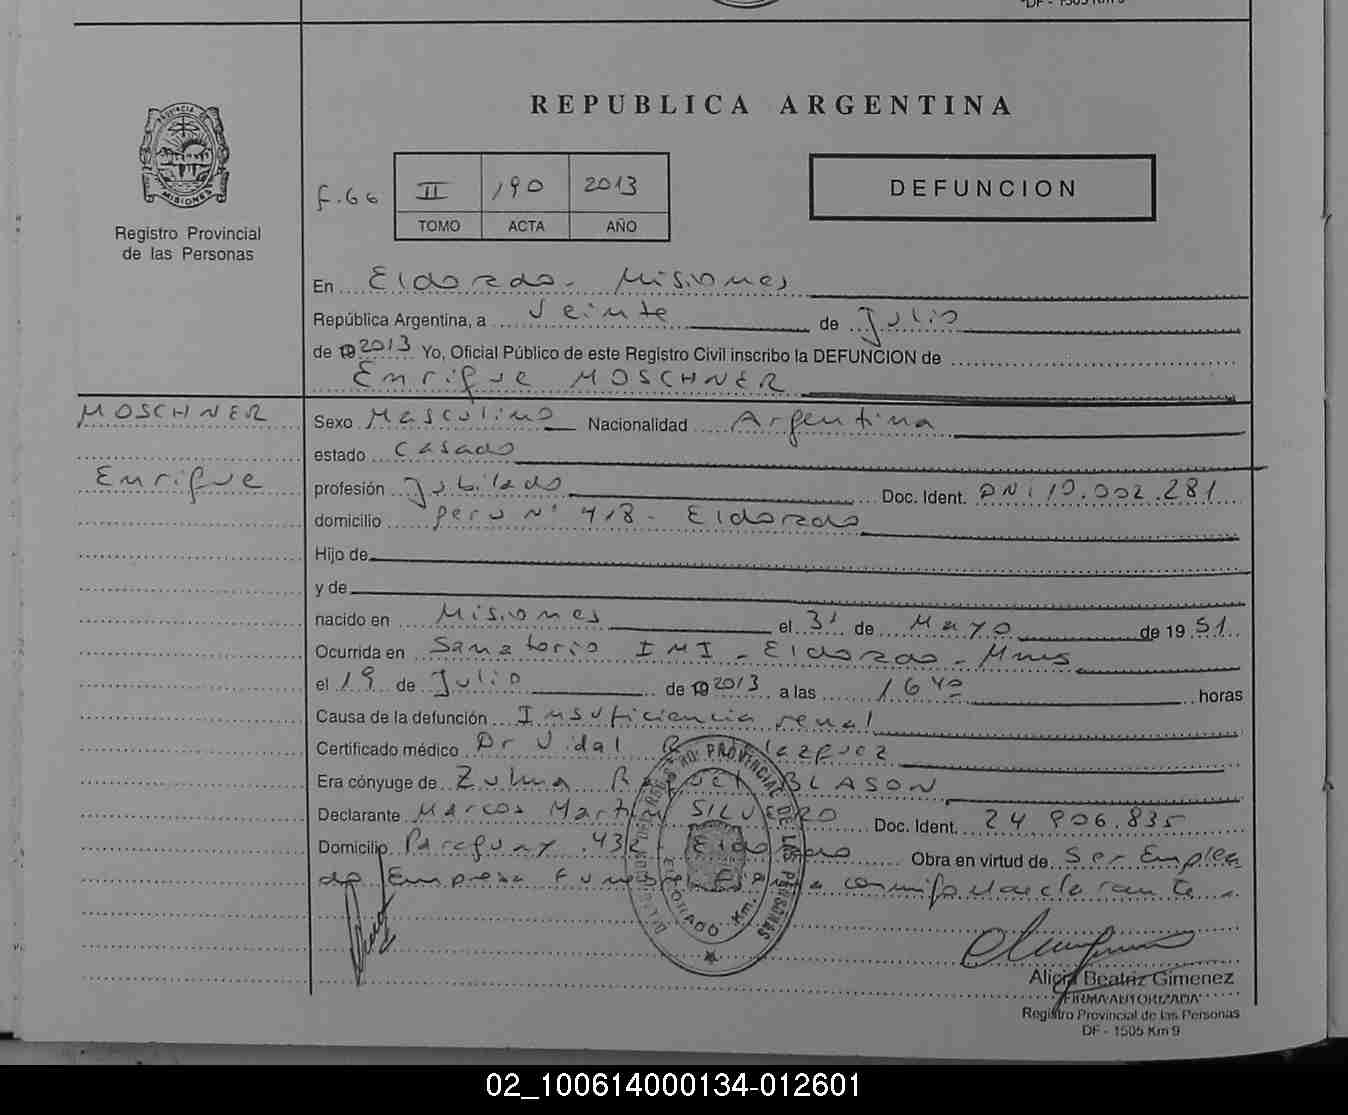 REPUBLICA ARGENTINA
PROVINCIA DE MISIONES
Registro Provincial
de las Personas
F. 66
II 190 2013
TOMO ACTA AÑO
DEFUNCION
En Eldorado - Misiones
República Argentina, a Veinte de Julio
de 2013 Yo, Oficial Público de este Registro Civil inscribo la DEFUNCION de
Enrique MOSCHNER
MOSCHNER
Enrique
Sexo Masculino Nacionalidad Argentina
estado Casado
profesión Jubilado Doc. Ident. DNI 10.002.281
domicilio Peru N° 418 - Eldorado
Hijo de
y de
nacido en Misiones el 31 de Mayo de 1951
Ocurrida en Sanatorio IMI - Eldorado - Mnes
el 19 de Julio de 2013 a las 16 40 horas
Causa de la defunción Insuficiencia renal
Certificado médico Dr Vidal
Era cónyuge de Zulma Raquel BLASON
Declarante Marcos Martin SILVERO Doc. Ident. 24 906.835
Domicilio Paraguay 432 - Eldorado Obra en virtud de Ser Emplea
do Empresa Funebre conmigo declarante
REGISTRO PROVINCIAL DE LAS PERSONAS
ELDORADO Km.
Alicia Beatriz Gimenez
FIRMA AUTORIZADA
Registro Provincial de las Personas
DF - 1505 Km 9
02_100614000134-012601